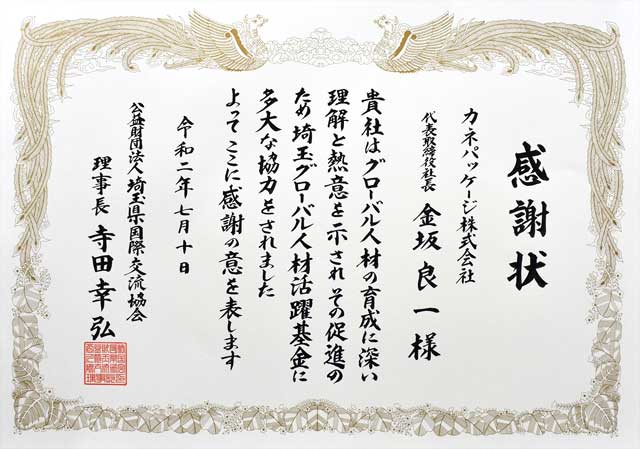 感謝状
カネパッケージ株式会社
代表取締役社長 金坂良一様
貴社はグローバル人材の育成に深い
理解と熱意を示され その促進の
ため埼玉グローバル人材活躍基金に
多大な協力をされました
よって ここに感謝の意を表します
令和二年七月十日
公益財団法人 埼玉県国際交流協会
理事長 寺田幸弘